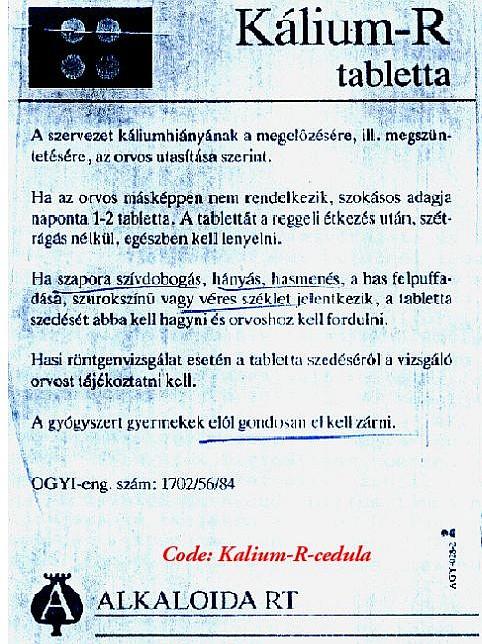 Kálium-R
tabletta
A szervezet káliumhiányának a megelőzésére, ill. megszün-
tetésére, az orvos utasítása szerint.
Ha az orvos másképpen nem rendelkezik, szokásos adagja
naponta 1-2 tabletta. A tablettát a reggeli étkezés után, szét-
rágás nélkül, egészben kell lenyelni.
Ha szapora szívdobogás, hányás, hasmenés, a has felpuffa-
dása, szurokszínű vagy véres széklet jelentkezik, a tabletta
szedését abba kell hagyni és orvoshoz kell fordulni.
Hasi röntgenvizsgálat esetén a tabletta szedéséről a vizsgáló
orvost tájékoztatni kell.
A gyógyszert gyermekek elől gondosan el kell zárni.
OGYI-eng. szám: 1702/56/84
Code: Kalium-R-cedula
AGY-028-2
A ALKALOIDA RT